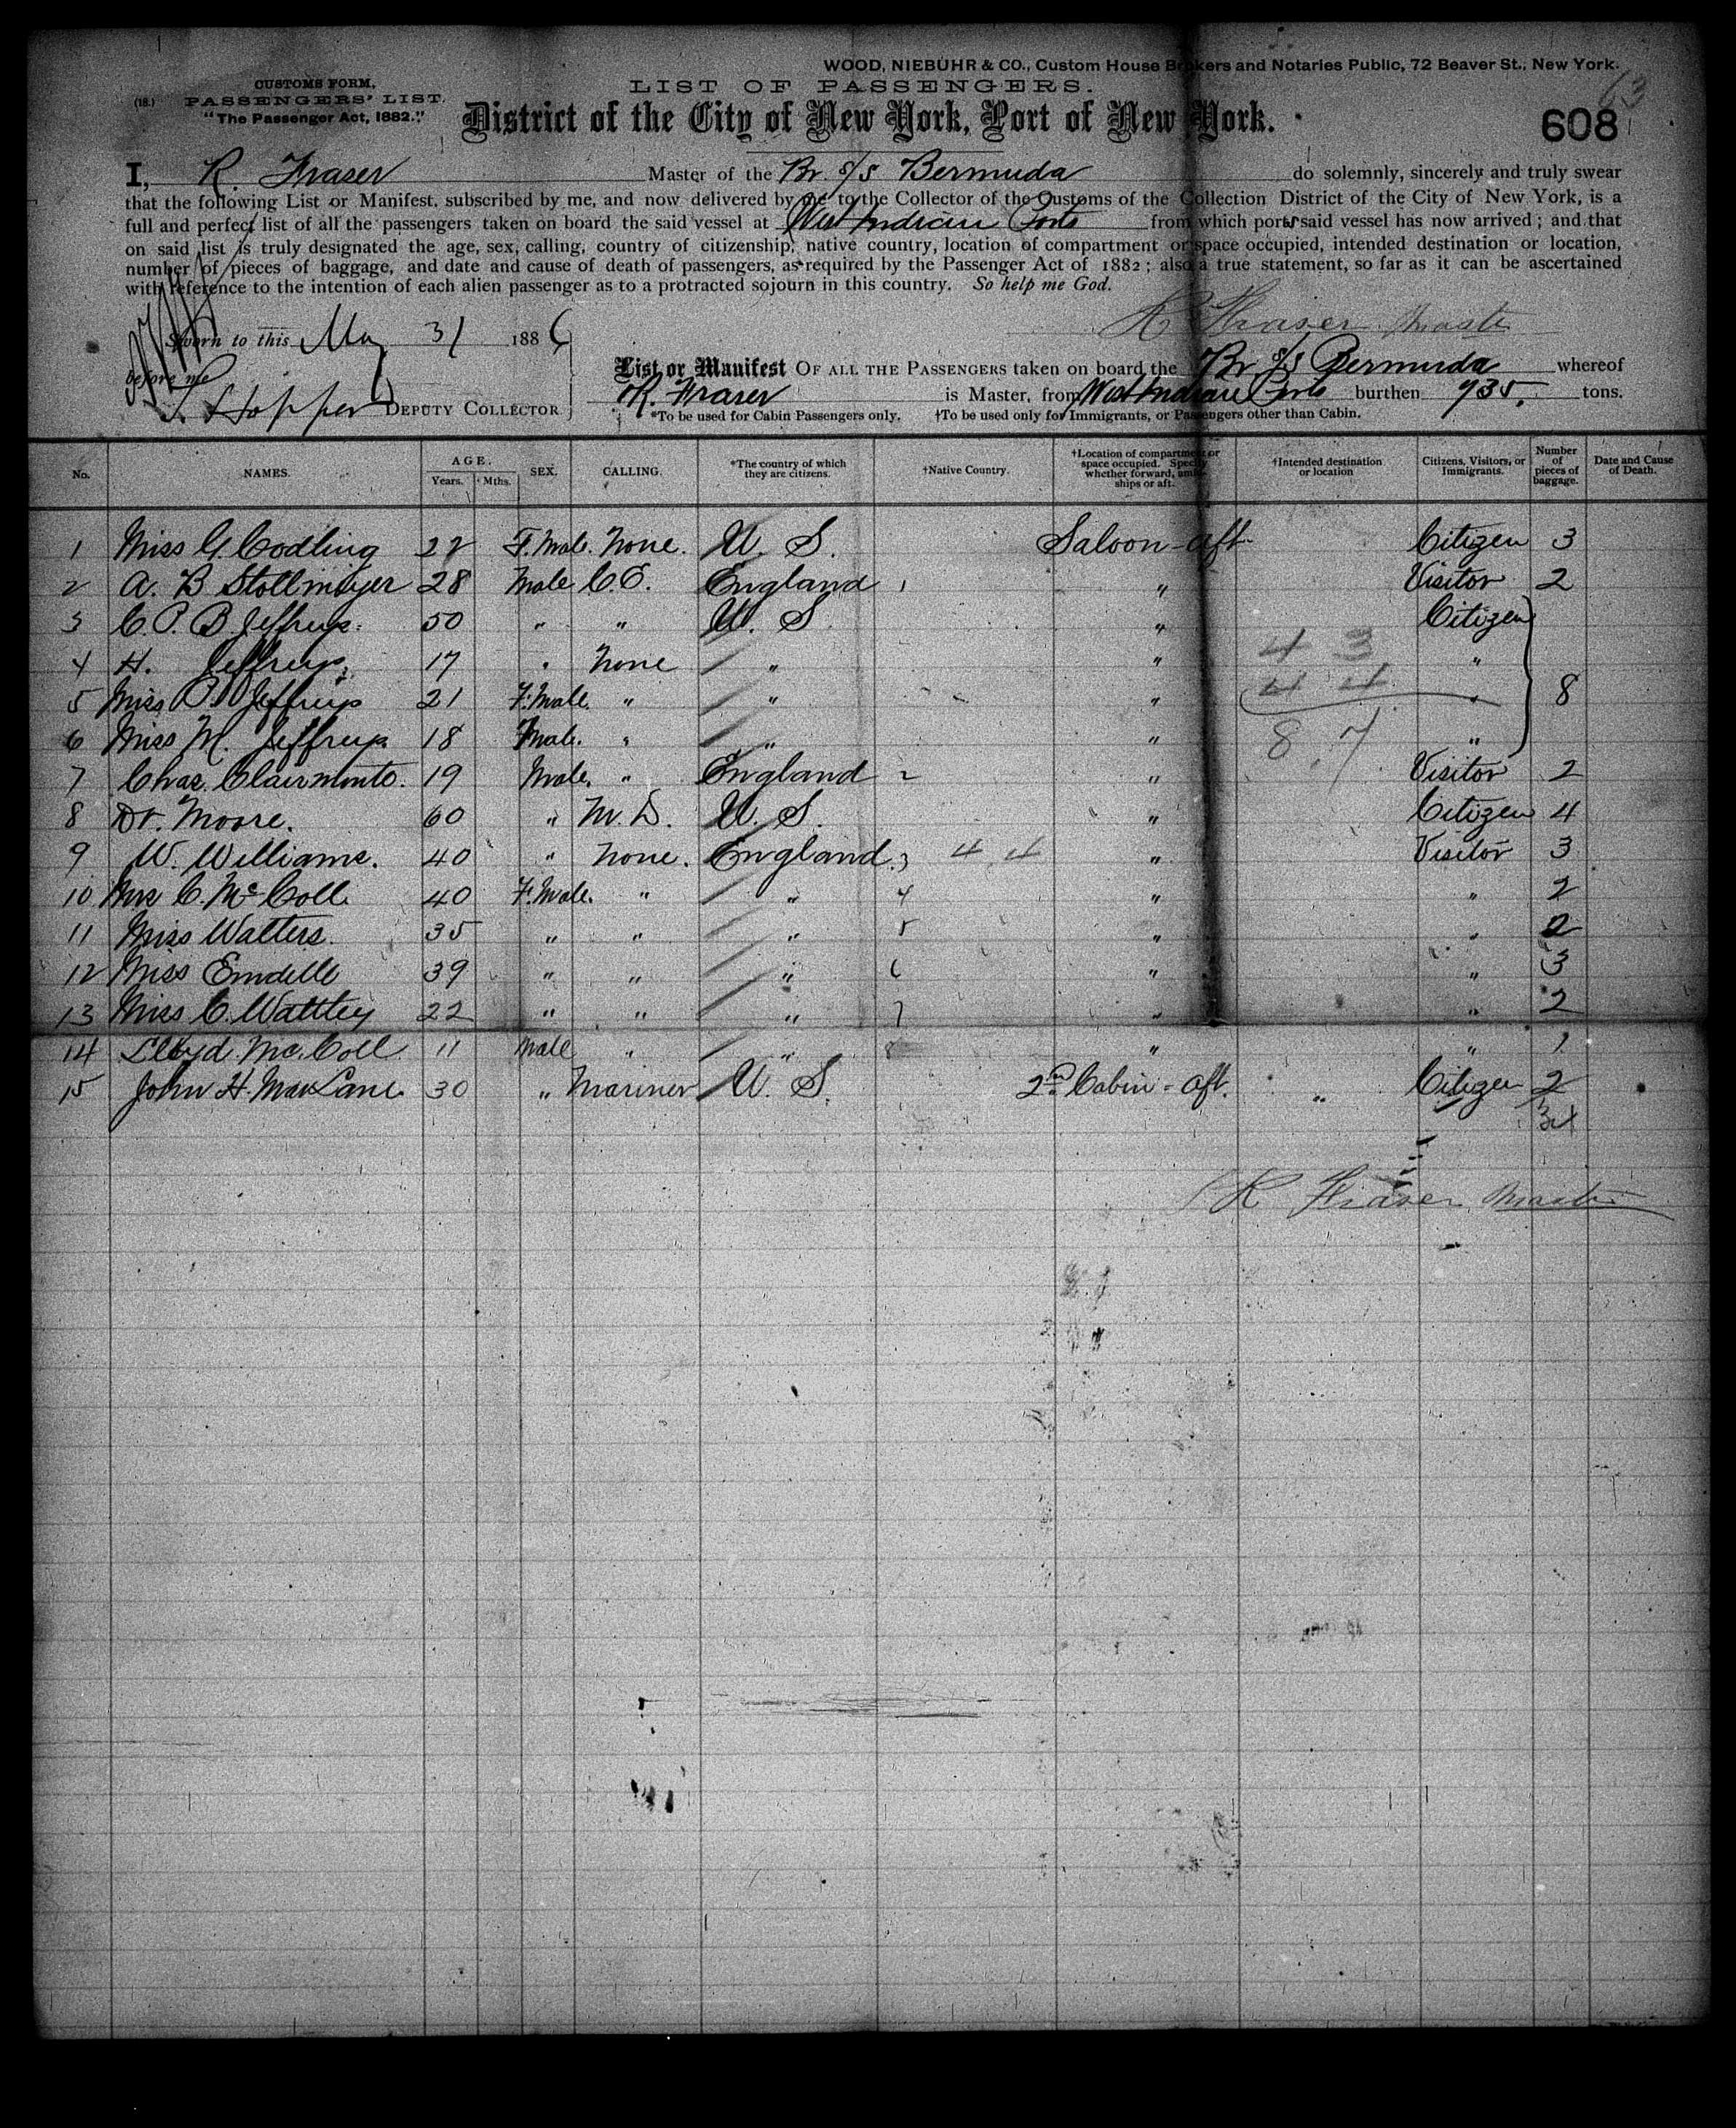 WOOD, NIEBUHR & CO., Custom House Brokers and Notaries Public, 72 Beaver St., New York.
CUSTOMS FORM.
(18.) PASSENGERS' LIST.
"The Passenger Act, 1882."
LIST OF PASSENGERS.
63
District of the City of New York, Port of New York.
608
I, R. Fraser Master of the Br. s/s Bermuda do solemnly, sincerely and truly swear
that the following List or Manifest, subscribed by me, and now delivered by me to the Collector of the Customs of the Collection District of the City of New York, is a
full and perfect list of all the passengers taken on board the said vessel at West Indian Ports from which ports said vessel has now arrived; and that
on said list is truly designated the age, sex, calling, country of citizenship, native country, location of compartment or space occupied, intended destination or location,
number of pieces of baggage, and date and cause of death of passengers, as required by the Passenger Act of 1882; also a true statement, so far as it can be ascertained
with reference to the intention of each alien passenger as to a protracted sojourn in this country. So help me God.
R Fraser Master
Sworn to this May 31 1886
before me
Hopper DEPUTY COLLECTOR
List or Manifest OF ALL THE PASSENGERS taken on board the Br s/s Bermuda whereof
R. Fraser is Master, from West Indian Ports burthen 935. tons.
*To be used for Cabin Passengers only. †To be used only for Immigrants, or Passengers other than Cabin.
No. NAMES. AGE. Years. Mths. SEX. CALLING. *The country of which they are citizens. †Native Country. †Location of compartment or space occupied. Specify whether forward, amidships or aft. †Intended destination or location Citizens, Visitors, or Immigrants. Number of pieces of baggage. Date and Cause of Death.
1 Miss G. Codling 22 F.Male. None. U. S. Saloon-aft Citizen 3
2 A. B Stollmeyer 28 Male C.E. England 1 " Visitor 2
3 C. P. B Jeffreys. 50 " " U. S. " Citizen
4 H. Jeffreys 17 " None " " 4 3 "
5 Miss P. Jeffreys 21 F.Male. " " " 4 4 " 8
6 Miss M. Jeffreys 18 Fmale. " " " 8 7 "
7 Chas. Clairmonto. 19 Male. " England 2 " Visitor 2
8 Dr. Moore. 60 " M.D. U. S. " Citizen 4
9 W. Williams. 40 " None. England. 3 4 4 " Visitor 3
10 Mrs C. McColl 40 F.Male. " " 4 " " 2
11 Miss Walters. 35 " " " 5 " " 2
12 Miss Emdelle 39 " " " 6 " " 3
13 Miss C. Wattley 22 " " " 7 " " 2
14 Lloyd McColl 11 Male " " 8 " " 1
15 John H. MacLane. 30 " Mariner U. S. 2nd Cabin-aft. " Citizen 2
34
R Fraser Master